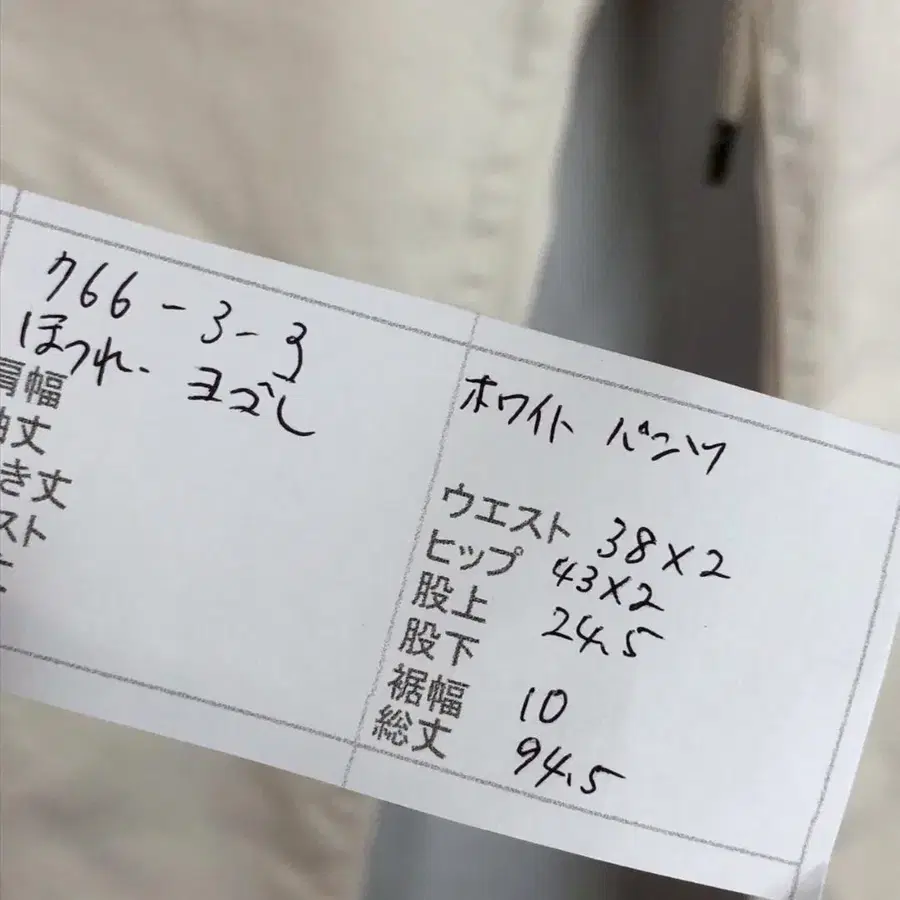 766-3-3
ほつれ. ヨゴレ
肩幅
丈
き丈
スト
ホワイト パンツ
ウエスト 38×2
ヒップ 43×2
股上 24.5
股下
裾幅 10
総丈 94.5